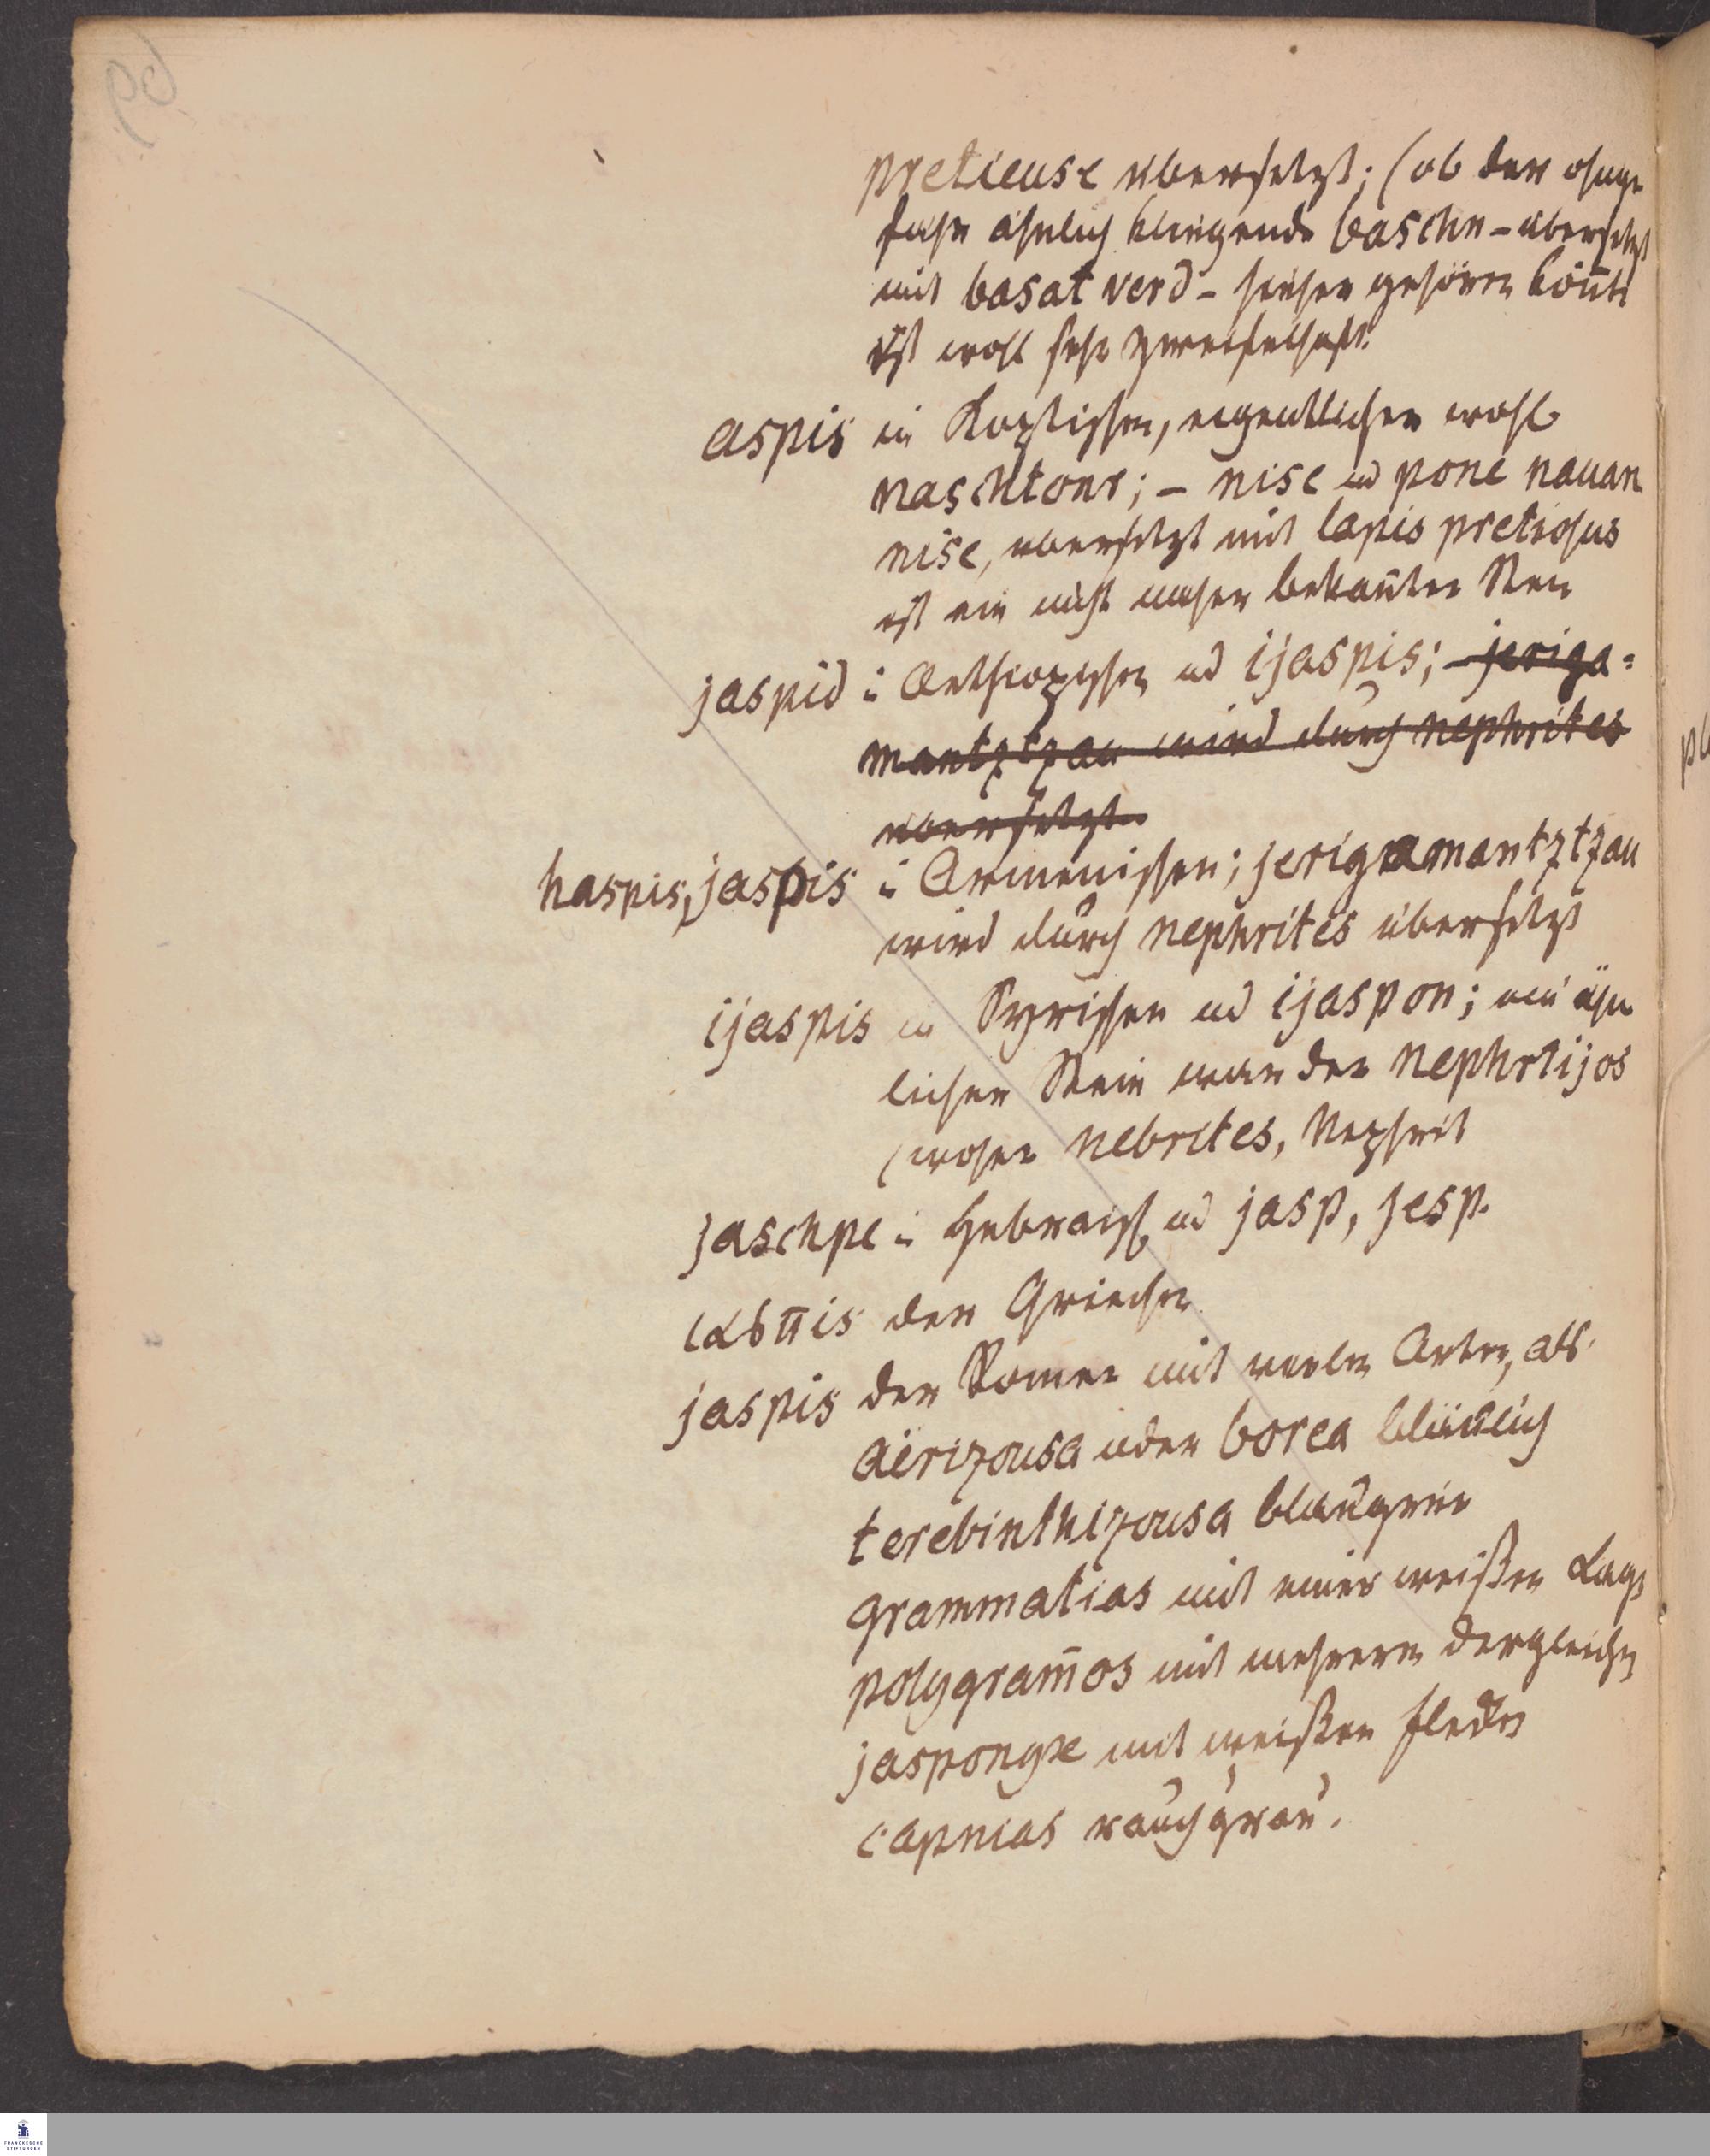 pretieuse übersetzt; (ob der ohnge
fehr ähnlich klingende baschn - übersetzt
mit basat verd - hieher gehören kön̄te
ist woll sehr zweifelhaft.
aspis in Koptischen, eigentlicher wohl
naschtons; - nise ud pone nauan
nise, übersetzt mit lapis pretiosus
ist ein nicht näher bekan̄ter Stein
jaspid i Aethiopischen ud ijaspis; jeriga=
mantztzau wird durch nephrites
übersetzt
haspis, jaspis i Armenischen; jerigamantztzau
wird durch nephrites übersetzt
ijaspis in Syrischen ud ijaspon; ein ähn
licher Stein war der nephrtijos
(woher nebrites, Nephrit
jaschpe i Hebraisch ud jasp, jesp.
ιαςπis der Griechen
jaspis der Romer mit vielen Arten, als
aërizousa oder borea bläulich
terebinthizousa blaugrün
grammatias mit einer weißen Lage
polygram̄os mit mehrern dergleichen
jasponyx mit weißen flecken
capnias rauchgrau.
FRANCKESCHE
STIFTUNGEN